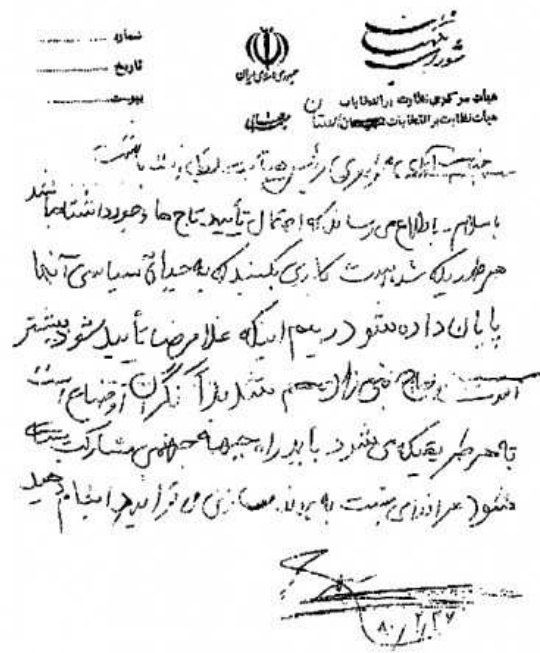 شماره
تاریخ
پیوست
جمهوری اسلامی ایران
شورای نگهبان
هیأت مرکزی نظارت بر انتخابات
هیأت نظارت بر انتخابات استان
باسلام - باطلاع می رساند که احتمال تأیید تاج ها وجود داشته باشد
هر طوریکه شده است کاری بکنید که به حیات سیاسی آنها
پایان داده شود بیم اینکه غلامرضا تأیید شود بیشتر
است هم شدیداً نگران اوضاع است
به هر طریقیکه می شود باید راه جبهه مشارکت بسته
شود هر اقدامی نسبت به پرونده سازی می توانید انجام دهید
۸۰/۲/۲۷